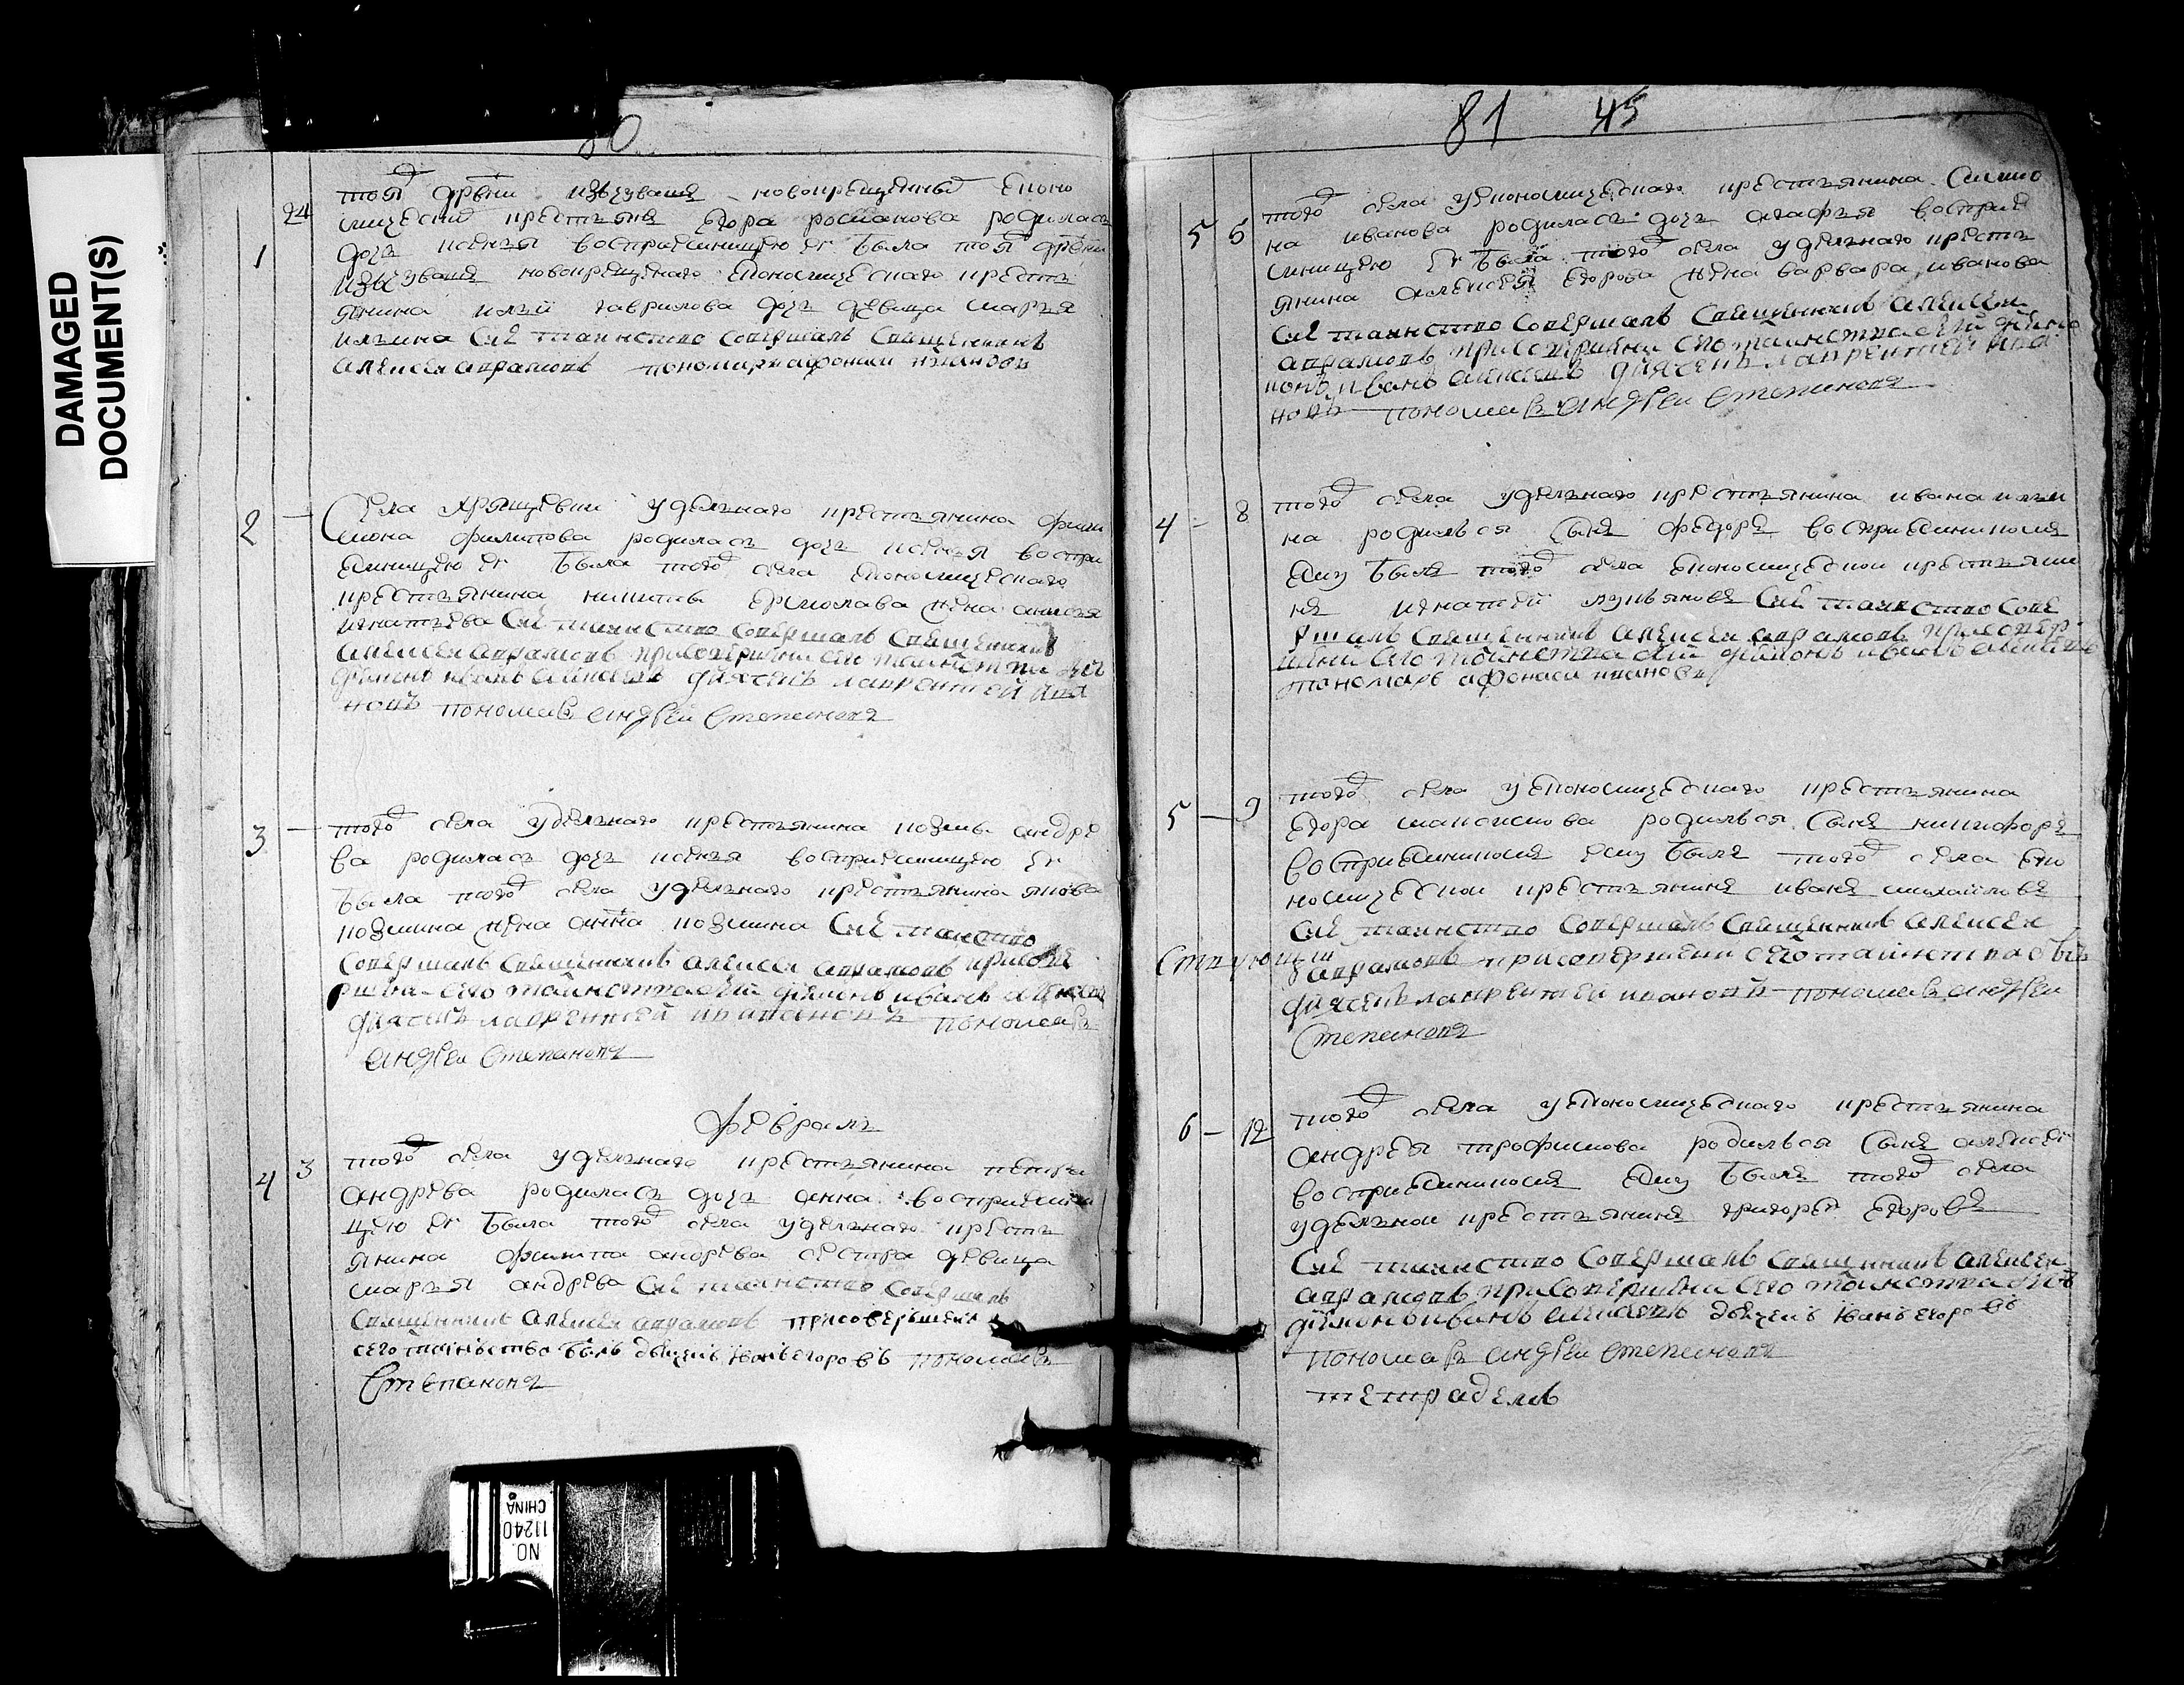 DAMAGED
DOCUMENT(S)
80
24
1
той древни новокрещенны еконо
мически крестьянъ егора романова родилась
дочь ксенья восприемницею ее была той древни
новокрещенаго економическаго кресть
янина ильи гаврилова дочь девица марья
ильина сие таинство совершалъ священникъ
алексеи аврамовъ пономарь афонаси ивановъ
2
Села удельнаго крестьянина фили
мона филипова родилась дочь ксенья воспри
емницею ее была того села економическаго
крестьянина никиты ермолава жена
игнатьева сие таинство совершалъ священникъ
алексеи аврамовъ присовершени сего таинства
диаконъ иванъ алексеевъ дьячекъ лаврентей ива
новъ пономарь андреи степановъ
3
того села удельнаго крестьянина козмы андре
ва родилась дочь ксенья восприемницею ее
была того села удельнаго крестьянина якова
козмина жена анна козмина сие таинство
совершалъ священникъ алексеи аврамовъ присове
ршени сего таинства диаконъ иванъ алексеевъ
дьячекъ лаврентей пономарь
андреи степановъ
февраль
4
3
того села удельнаго крестьянина петра
андрева родилась дочь анна восприемни
цею ее была того села удельнаго кресть
янина филипа андрева сестра девица
марья андрева сие таинство совершалъ
священникъ алексеи аврамовъ присовершени
сего таиньство былъ дьячекъ иванъ егоровъ пономарь
степановъ
81 45
5
6
того села економическаго крестьянина симио
на иванова родилась дочь агафья восприе
мницею ее была того села удельнаго кресть
янина алексея егорова жена варвара иванова
сие таинство совершалъ священникъ алексеи
аврамовъ присовершени сего таинства диако
иванъ алексеевъ дьячекъ лаврентей ива
новъ пономарь андреи степановъ
4
8
того села удельнаго крестьянина ивана ильи
на родился сынъ федоръ восприемникомъ
ему былъ того села економическои крестьяни
нъ игнатей лукьяновъ сие таинство сове
ршалъ священникъ алексеи аврамовъ присовер
шени сего таинства диаконъ иванъ алексеевъ
пономарь афонаси ивановъ
5
9
того села економическаго крестьянина
егора родился сынъ никифоръ
восприемникомъ ему былъ того села еко
номическои крестьянинъ иванъ михайловъ
сие таинство совершалъ священникъ алексеи
аврамовъ присовершени сего таинства былъ
дьячекъ лаврентей ивановъ пономарь андреи
степановъ
6
12
того села економическаго крестьянина
андрея трофимова родился сынъ алексеи
восприемникомъ ему былъ того села
удельнои крестьянинъ григорей егоровъ
сие таинство совершалъ священникъ алексеи
аврамовъ присовершени сего таинства
диаконъ иванъ алексеевъ дьячекъ иванъ егоровъ
пономарь андреи степановъ
NO.
11240
CHINA